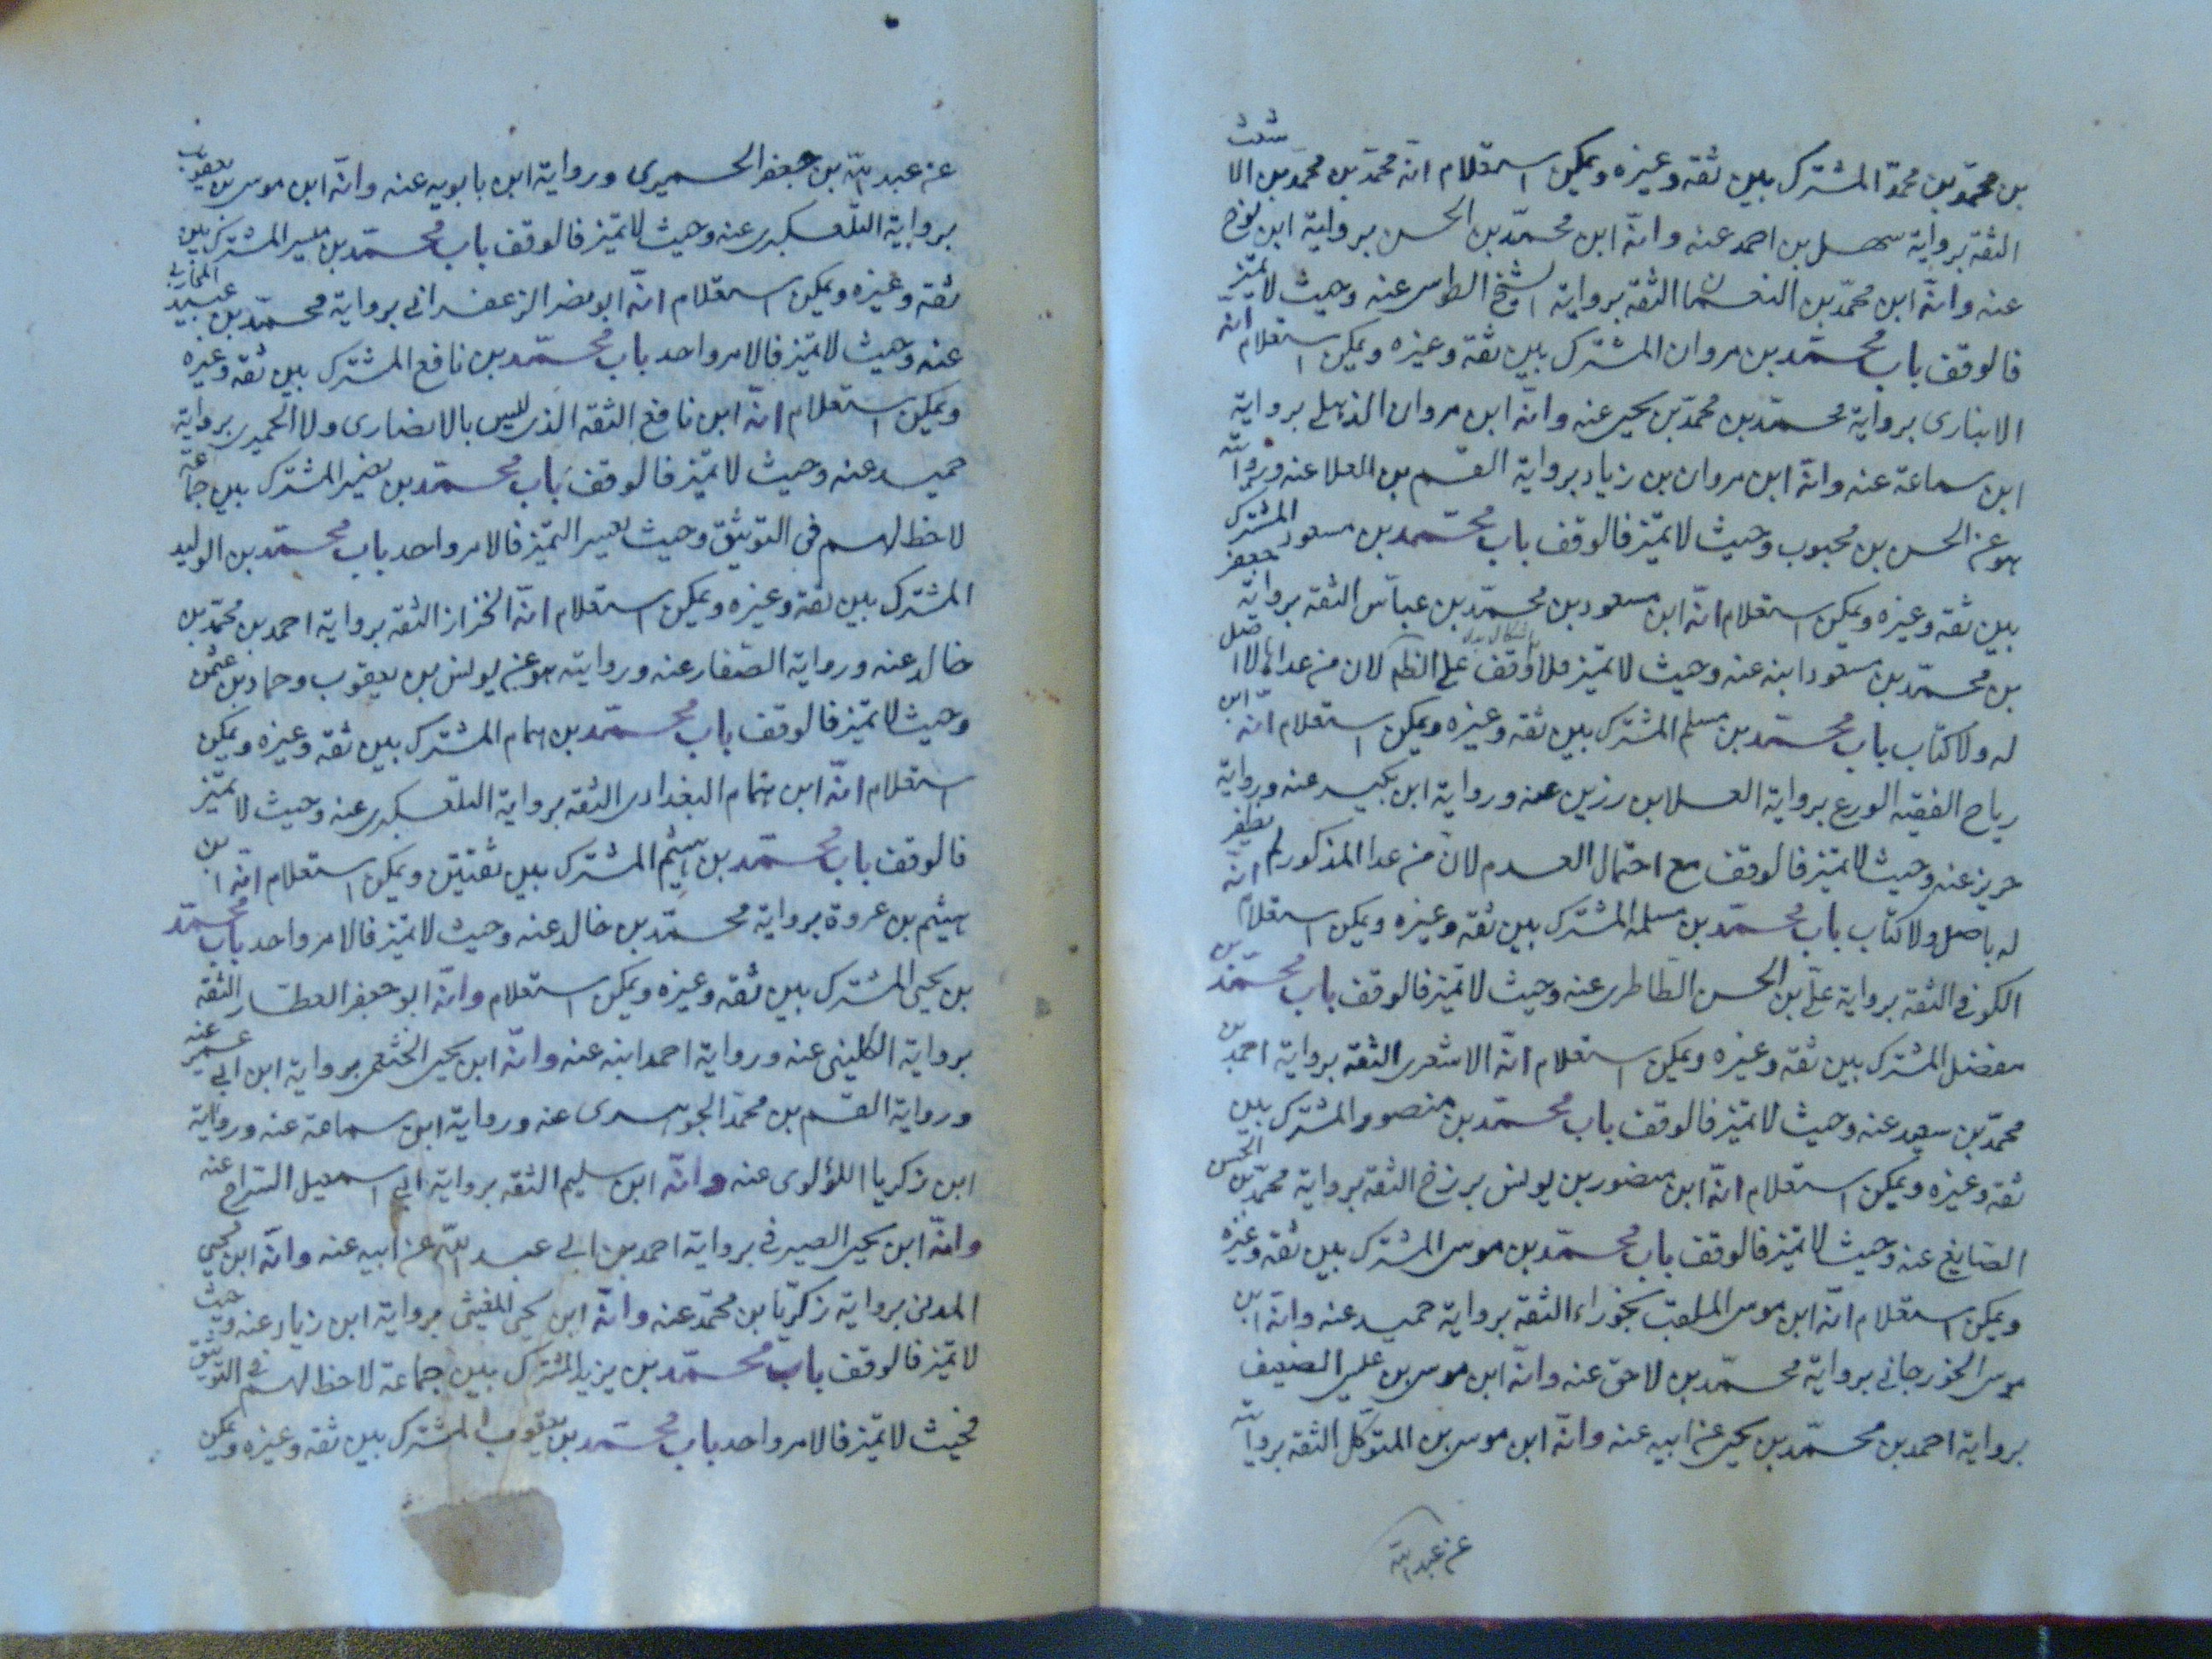 بن محمد بن محمد المشترك بين ثقة وغيره ويمكن استعلام انه محمد بن محمد بن الاشعث
الثقة برواية سهل بن احمد عنه وانه ابن محمد بن الحسن برواية ابن نوح
عنه وانه ابن محمد بن النعمان الثقة برواية الشيخ الطوسي عنه وحيث لا تميز
فالوقف باب محمد بن مروان المشترك بين ثقة وغيره ويمكن استعلام انه
الانباري برواية محمد بن محمد بن يحيى عنه وانه ابن مروان الذهلي برواية
ابن سماعة عنه وانه ابن مروان بن زياد برواية القسم بن العلا عنه وروايته
هو عن الحسن بن محبوب وحيث لا تميز فالوقف باب محمد بن مسعود المشترك
بين ثقة وغيره ويمكن استعلام انه ابن مسعود بن محمد بن عباس الثقة برواية جعفر
بن محمد بن مسعود ابنه عنه وحيث لا تميز فلا وقف على الظم لان من عداه لا اصل
له ولا كتاب باب محمد بن مسلم المشترك بين ثقة وغيره ويمكن استعلام انه ابن
رياح الفقيه الورع برواية العلا بن رزين عنه ورواية ابن بكير عنه ورواية
حريز عنه وحيث لا تميز فالوقف مع احتمال العدم لان من عدا المذكور لم
له باصل ولا كتاب باب محمد بن مسلمة المشترك بين ثقة وغيره ويمكن استعلام انه
الكوفي الثقة برواية علي بن الحسن الطاطري عنه وحيث لا تميز فالوقف باب محمد بن
مفضل المشترك بين ثقة وغيره ويمكن استعلام انه الاشعري الثقة برواية احمد بن
محمد بن سعيد عنه وحيث لا تميز فالوقف باب محمد بن منصور المشترك بين
ثقة وغيره ويمكن استعلام انه ابن منصور بن يونس بزرج الثقة برواية محمد بن الحسن
الصايغ عنه وحيث لا تميز فالوقف باب محمد بن موسى المشترك بين ثقة وغيره
ويمكن استعلام انه ابن موسى الملقب بخوراء الثقة برواية حميد عنه وانه ابن
موسى الخورجاني برواية محمد بن لاحق عنه وانه ابن موسى بن عيسى الضعيف
برواية احمد بن محمد بن يحيى عن ابيه عنه وانه ابن موسى بن المتوكل الثقة بروايته
عن عبد الله
عن عبد الله بن جعفر الحميري ورواية ابن بابويه عنه وانه ابن موسى بن يعقوب
برواية التلعكبري عنه وحيث لا تميز فالوقف باب محمد بن ميسر المشترك بين
ثقة وغيره ويمكن استعلام انه ابو نصر الزعفراني برواية محمد بن عبيد المحاربي
عنه وحيث لا تميز فالامر واحد باب محمد بن نافع المشترك بين ثقة وغيره
ويمكن استعلام انه ابن نافع الثقة الذي ليس بالانصاري ولا الحميري برواية
حميد عنه وحيث لا تميز فالوقف باب محمد بن نصير المشترك بين جماعة
لا حظ لهم في التوثيق وحيث يعسر التميز فالامر واحد باب محمد بن الوليد
المشترك بين ثقة وغيره ويمكن استعلام انه الخزاز الثقة برواية احمد بن محمد بن
خالد عنه ورواية الصفار عنه وروايته هو عن يونس بن يعقوب وحماد بن عثمن
وحيث لا تميز فالوقف باب محمد بن همام المشترك بين ثقة وغيره ويمكن
استعلام انه ابن همام البغدادي الثقة برواية التلعكبري عنه وحيث لا تميز
فالوقف باب محمد بن هيثم المشترك بين ثقتين ويمكن استعلام انه ابن
هيثم بن عروة برواية محمد بن خالد عنه وحيث لا تميز فالامر واحد باب محمد
بن يحيى المشترك بين ثقة وغيره ويمكن استعلام وانه ابو جعفر العطار الثقة
برواية الكليني عنه ورواية احمد ابنه عنه وانه ابن يحيى الخثعمي برواية ابن ابي عمير عنه
ورواية القسم بن محمد الجوهري عنه ورواية ابن سماعة عنه ورواية
ابن زكريا اللؤلوي عنه وانه ابن سليم الثقة برواية ابي اسمعيل السراج عنه
وانه ابن يحيى الصيرفي برواية احمد بن ابي عبد الله عن ابيه عنه وانه ابن يحيى
المدني برواية زكريا بن محمد عنه وانه ابن يحيى المغيثي برواية ابن زياد عنه وحيث
لا تميز فالوقف باب محمد بن يزيد المشترك بين جماعة لا حظ لهم في التوثيق
فحيث لا تميز فالامر واحد باب محمد بن يعقوب المشترك بين ثقة وغيره ويمكن